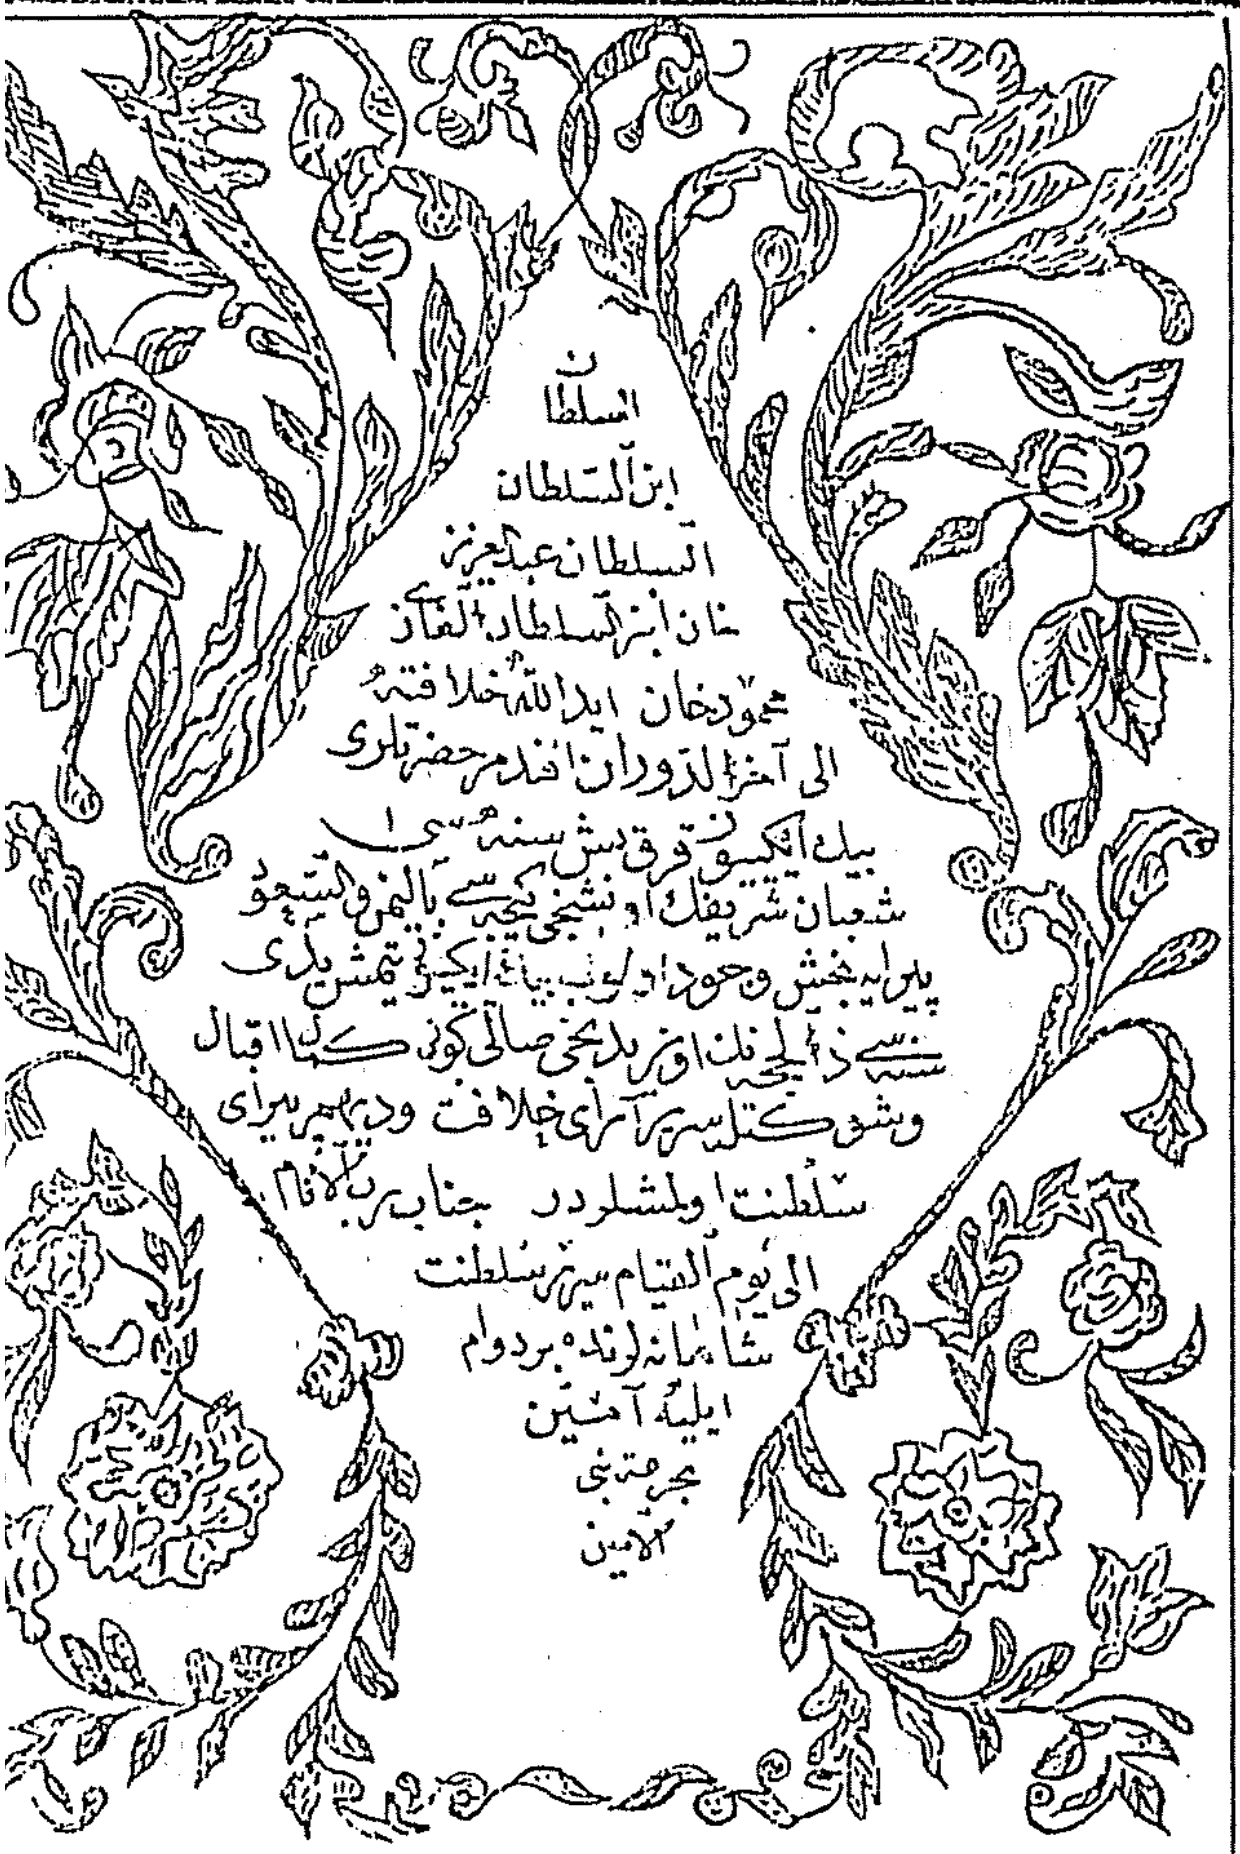 السلطان
ابن السلطان
السلطان عبد العزيز
خان ابن السلطان الغازى
محمود خان ايد الله خلافته
الى آخر الدوران افندم حضرتلرى
بيك ايكييوز قرق بش سنه سى
شعبان شريفك اون بشنجى كيجه سى باليمن والسعود
پيرايه بخش وجود اولوب بيك ايكيوز يتمش يدى
سنه سى ذى الحجه نك اون يدنجى صالى كونى كمال اقبال
وشوكتله سرير آراى خلافت وديهيم پيراى
سلطنت اولمشلردر جناب رب الانام
الى يوم القيام سرير سلطنت
شاهانه لرنده بر دوام
ايليه آمين
بحرمة نبى
الامين